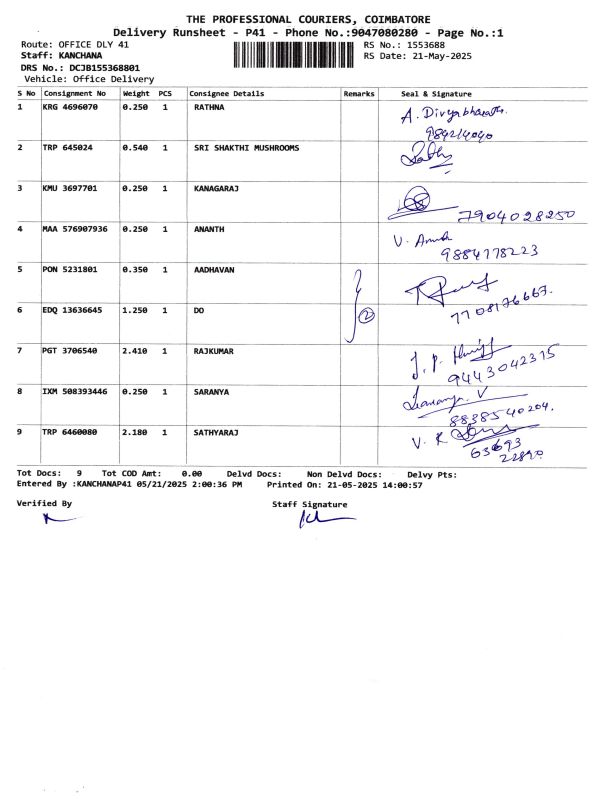 THE PROFESSIONAL COURIERS, COIMBATORE
Delivery Runsheet - P41 - Phone No.:9047080280 - Page No.:1
Route: OFFICE DLY 41 RS No.: 1553688
Staff: KANCHANA RS Date: 21-May-2025
DRS No.: DCJB155368801
Vehicle: Office Delivery
S No Consignment No Weight PCS Consignee Details Remarks Seal & Signature
1 KRG 4696070 0.250 1 RATHNA A. Divyabharathi
2 TRP 645024 0.540 1 SRI SHAKTHI MUSHROOMS
3 KMU 3697701 0.250 1 KANAGARAJ
7904028250
4 MAA 576907936 0.250 1 ANANTH V. Ananth
9884778223
5 PON 5231801 0.350 1 AADHAVAN
6 EDQ 13636645 1.250 1 DO 2 7708176667.
7 PGT 3706540 2.410 1 RAJKUMAR J. P.
9443042315
8 IXM 508393446 0.250 1 SARANYA Saranya. V
8838540204.
9 TRP 6460080 2.180 1 SATHYARAJ V. K
63693
22890
Tot Docs: 9 Tot COD Amt: 0.00 Delvd Docs: Non Delvd Docs: Delvy Pts:
Entered By :KANCHANAP41 05/21/2025 2:00:36 PM Printed On: 21-05-2025 14:00:57
Verified By Staff Signature